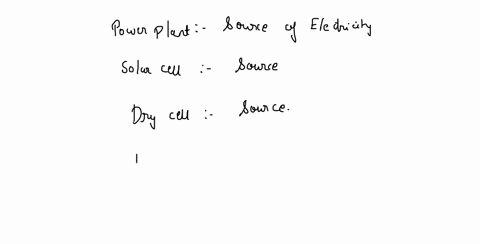 Power plant :- Source of Electricity
Solar cell :- Source
Dry cell :- Source.